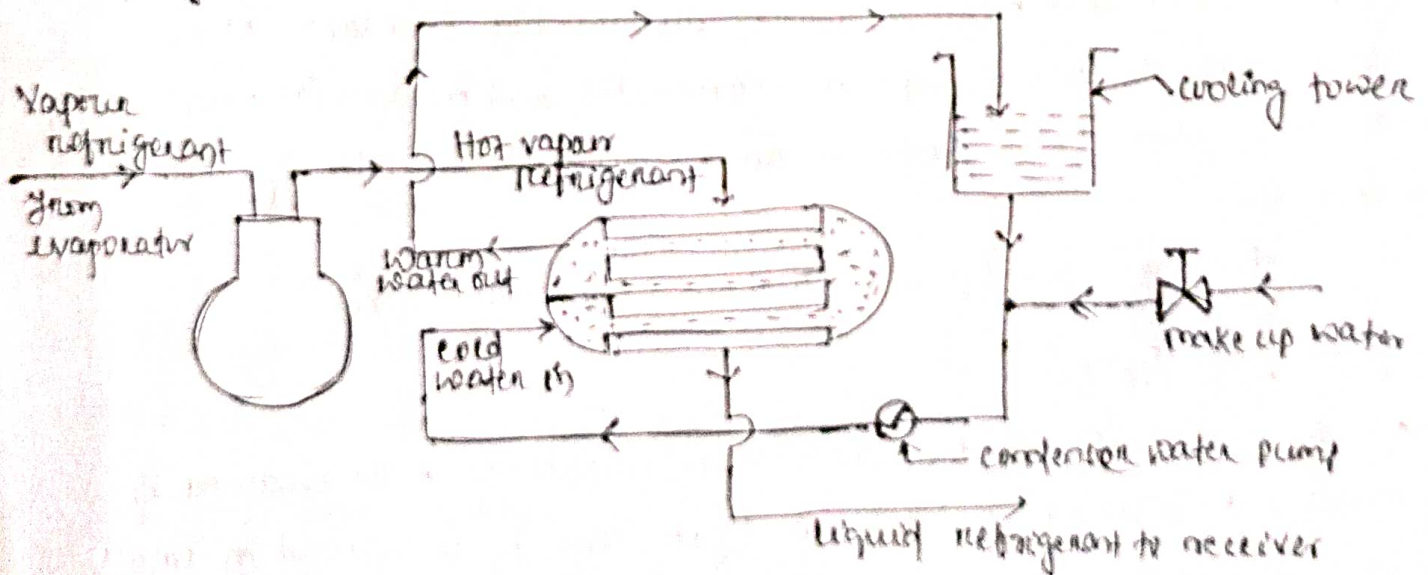 Vapour
refrigerant
from
evaporator
Hot vapour
refrigerant
cooling tower
warm
water out
cold
water in
make up water
condenser water pump
liquid refrigerant to receiver